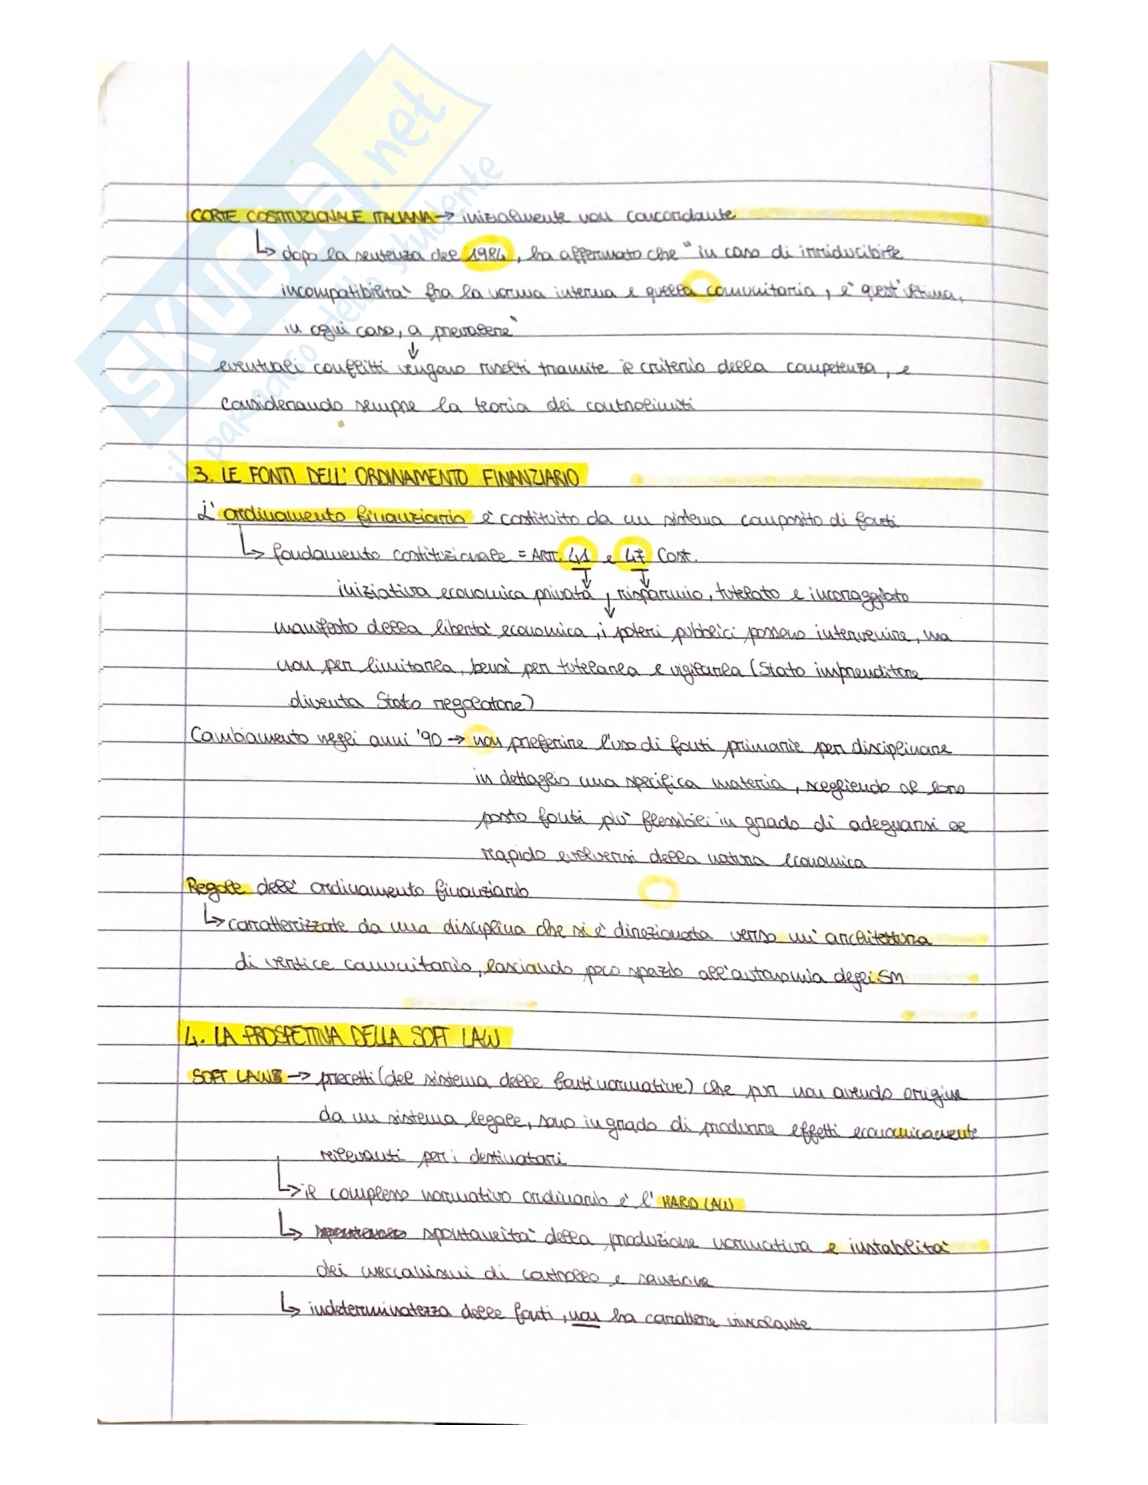 SKUOLA.net
il paradiso dello studente
CORTE COSTITUZIONALE ITALIANA → inizialmente non concordante
↳ dopo la sentenza del 1984, ha affermato che "in caso di irriducibile
incompatibilità fra la norma interna e quella comunitaria, è quest'ultima,
in ogni caso, a prevalere"
↓
eventuali conflitti vengono risolti tramite il criterio della competenza, e
considerando sempre la teoria dei controlimiti
3. LE FONTI DELL'ORDINAMENTO FINANZIARIO
L'ordinamento finanziario è costituito da un sistema composito di fonti
↳ fondamento costituzionale = ART. 41 e 47 Cost.
iniziativa economica privata, risparmio, tutelato e incoraggiato
manifesto della libertà economica, i poteri pubblici possono intervenire, ma
non per limitarla, bensì per tutelarla e vigilarla (Stato imprenditore
diventa Stato regolatore)
Cambiamento negli anni '90 → non preferire l'uso di fonti primarie per disciplinare
in dettaglio una specifica materia, scegliendo al loro
posto fonti più flessibili in grado di adeguarsi al
rapido evolversi della natura economica
Regole dell'ordinamento finanziario
↳ caratterizzate da una disciplina che si è direzionata verso un'architettura
di vertice comunitario, lasciando poco spazio all'autonomia degli SM
4. LA PROSPETTIVA DELLA SOFT LAW
SOFT LAW → precetti (del sistema delle fonti normative) che pur non avendo origine
da un sistema legale, sono in grado di produrre effetti economicamente
rilevanti per i destinatari
↳ il complesso normativo ordinario è l'HARD LAW
↳ spontaneità della produzione normativa e instabilità
dei meccanismi di controllo e sanzione
↳ indeterminatezza delle fonti, non ha carattere vincolante